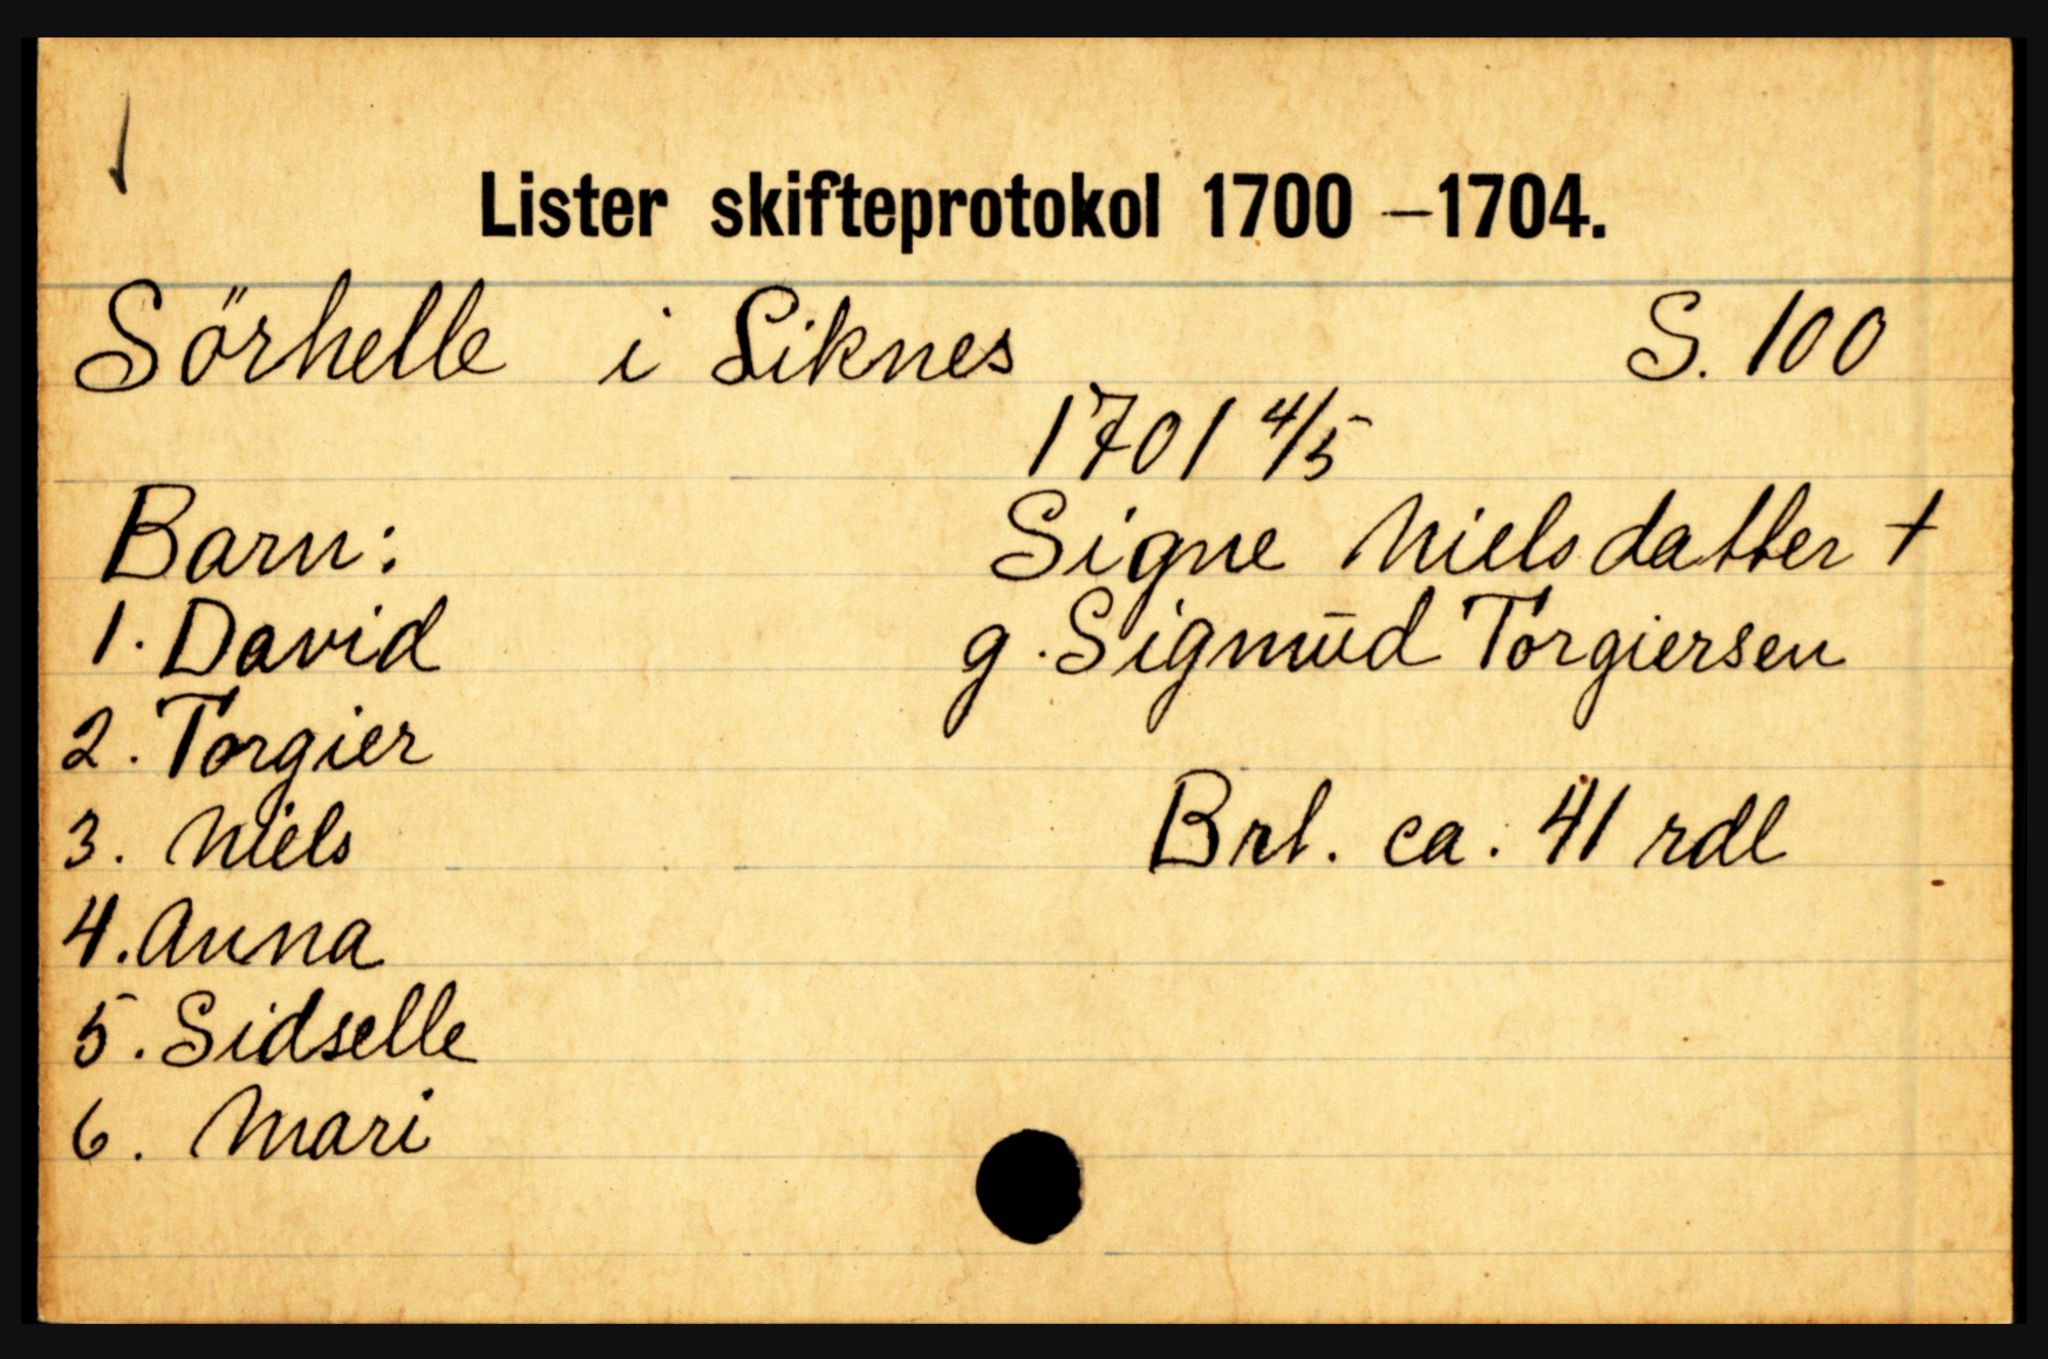 Lister skifteprotokol 1700 – 1704.
Sörhelle i Liknes S. 100
1701 4/5
Barn: Signe Nielsdatter +
1. David g. Sigmūd Torgiersen
2. Torgier
3. Niels Brl. ca. 41 rdl
4. Anna
5. Sidselle
6. Mari